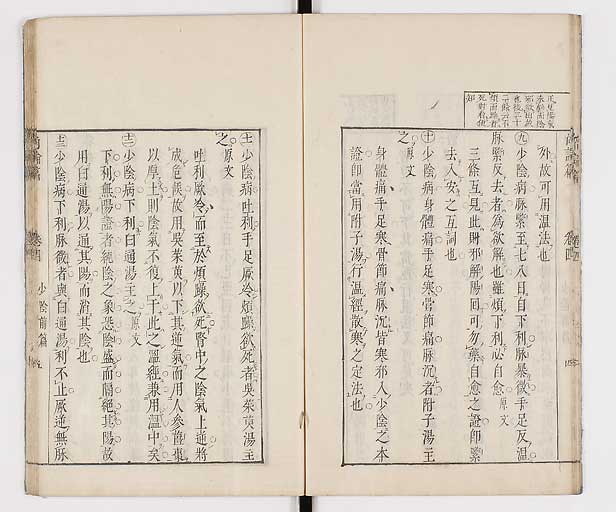 外故可用溫法也
九少陰病脉緊至七八日自下利脉暴微手足反溫
脉緊反去者爲欲解也雖煩下利必自愈 原文
三條互見此則邪解陽回可勿藥自愈之證即緊
去人安之互詞也
十少陰病身體痛手足寒骨節痛脉沉者附子湯主
之 原文
身體痛手足寒骨節痛脉沉皆寒邪入少陰之本
證即當用附子湯行溫經散寒之定法也
土少陰病吐利手足厥冷煩躁欲死者吳茱萸湯主
之 原文
吐利厥冷而至於煩躁欲死腎中之陰氣上逆將
成危候故用吳茱萸以下其逆氣而用人參薑棗
以厚土則陰氣不復上干此之溫經兼用溫中矣
土二少陰病下利白通湯主之 原文
下利無陽證者純陰之象恐陰盛而隔絕其陽故
用白通湯以通其陽而消其陰也
土三少陰病下利脉微者與白通湯利不止厥逆無脉
尚論篇
卷四
少陰前篇